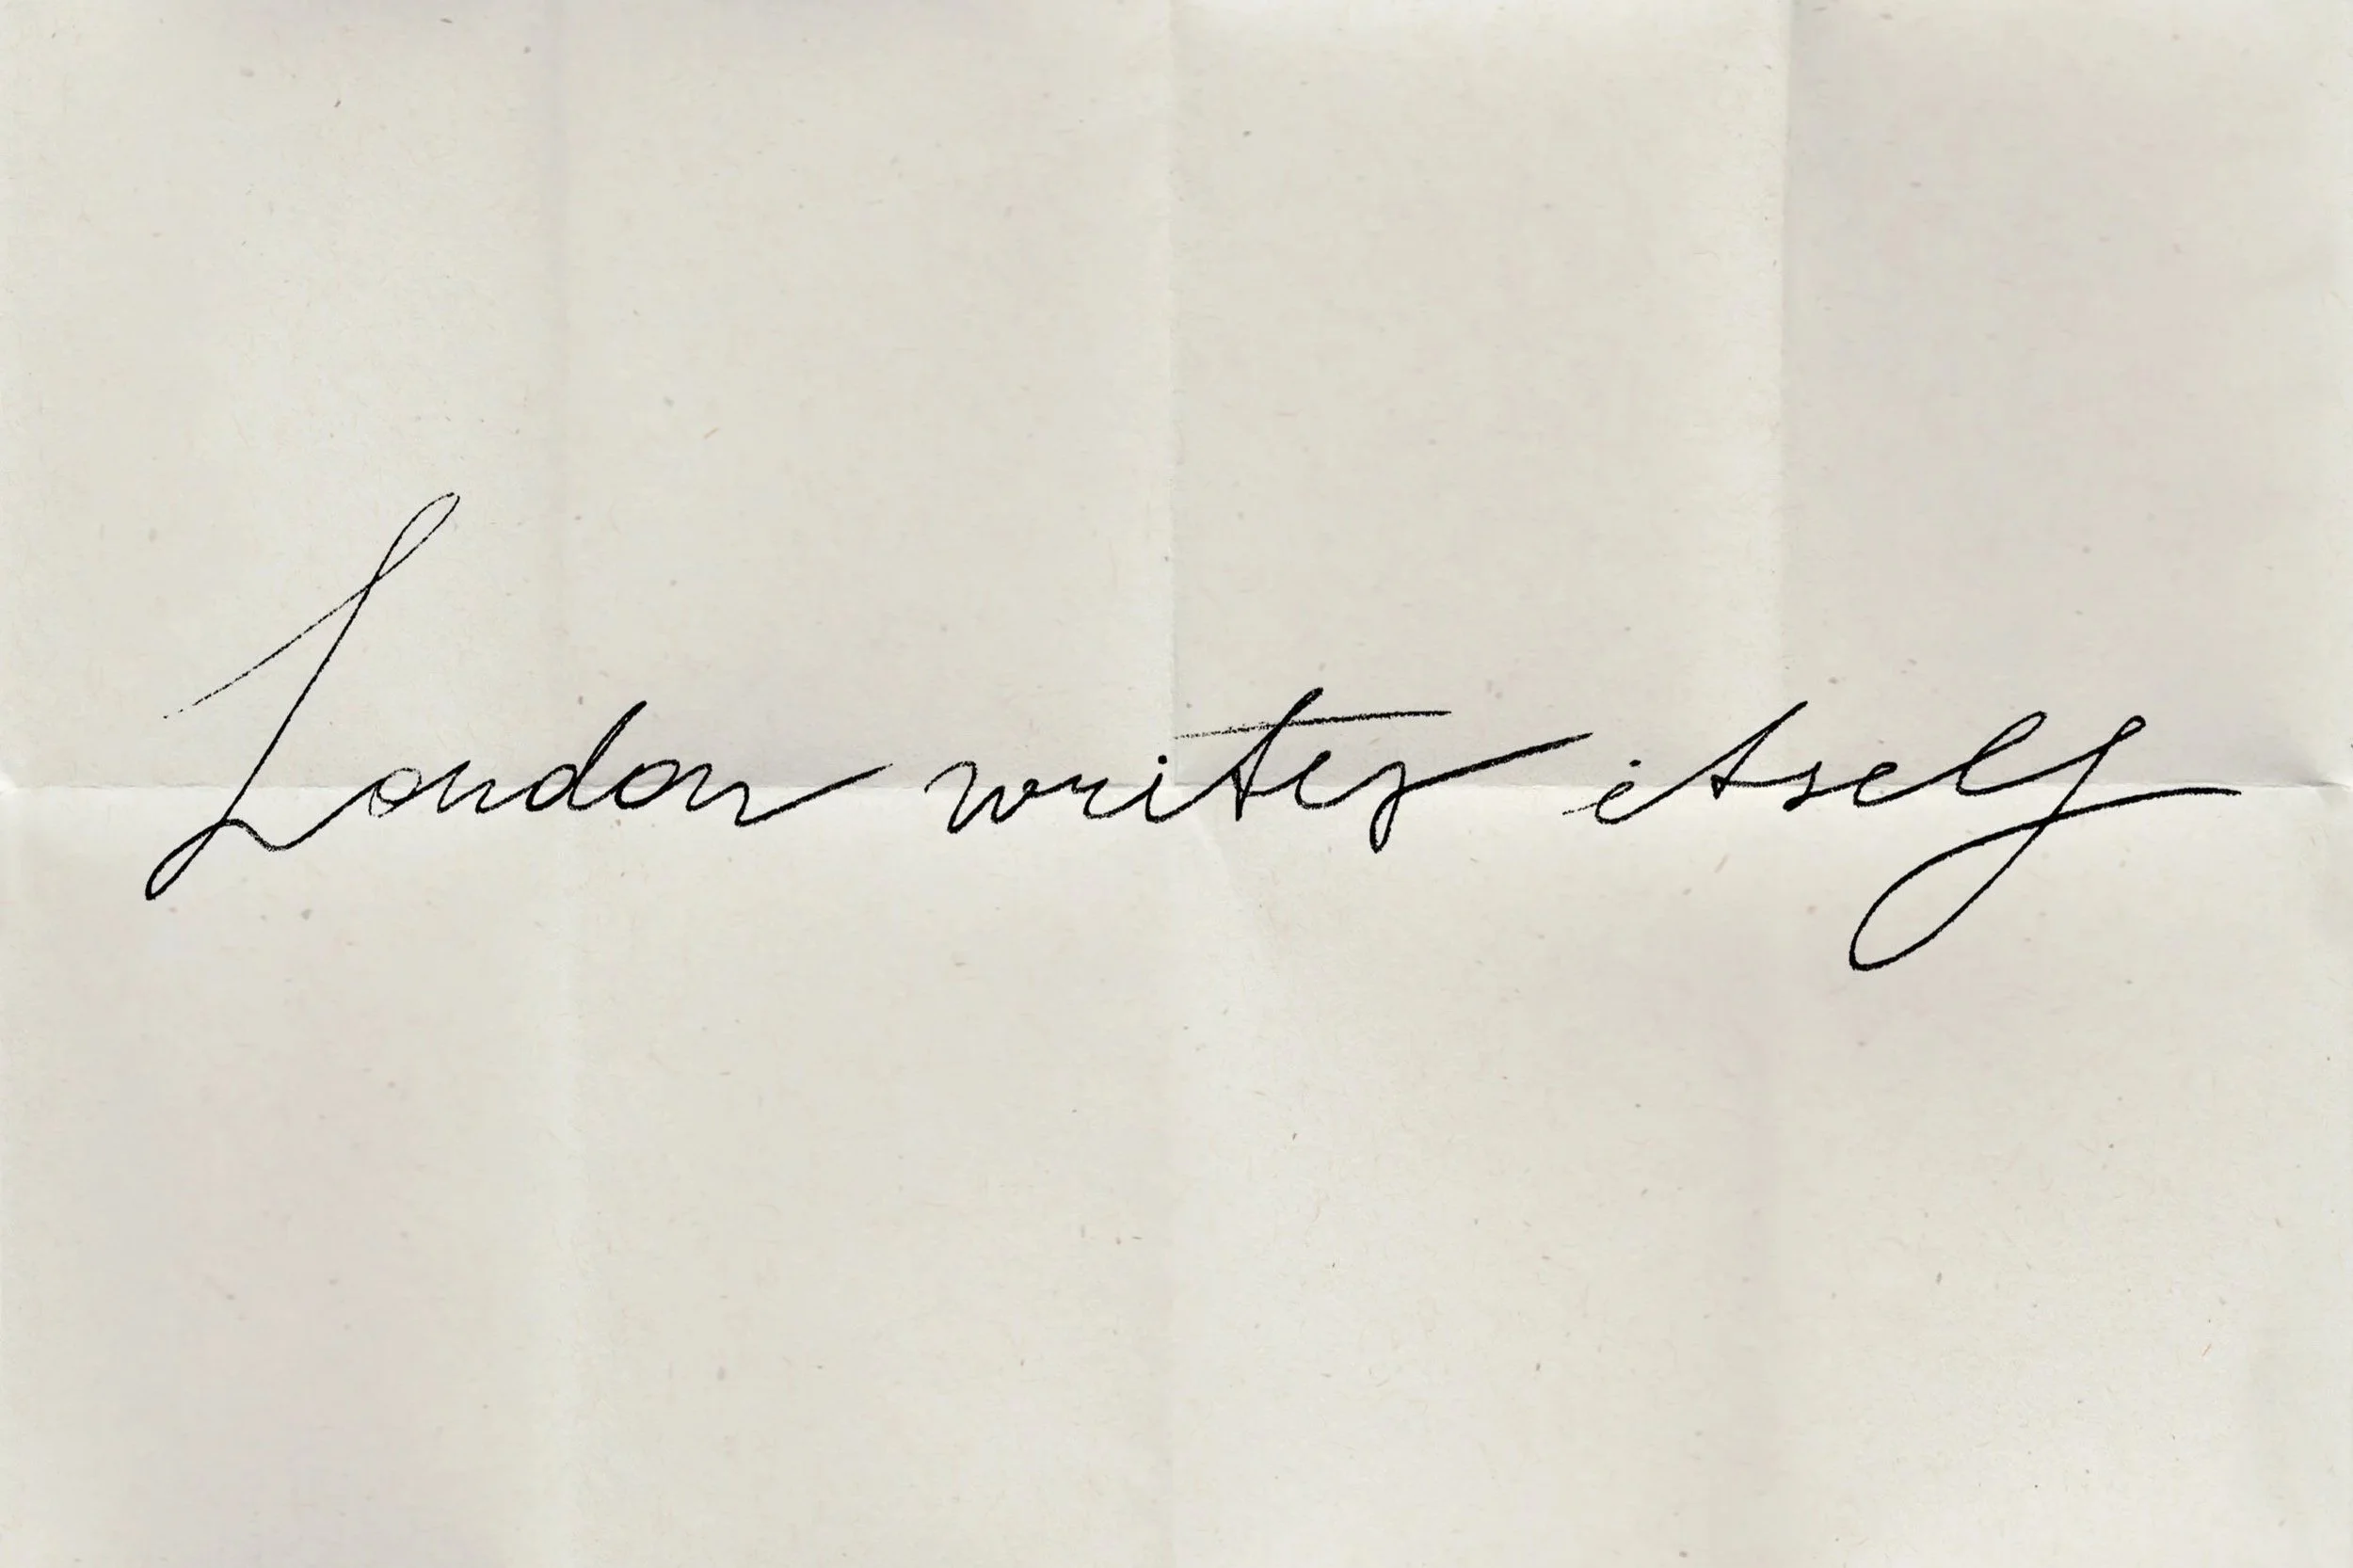 London writes itself